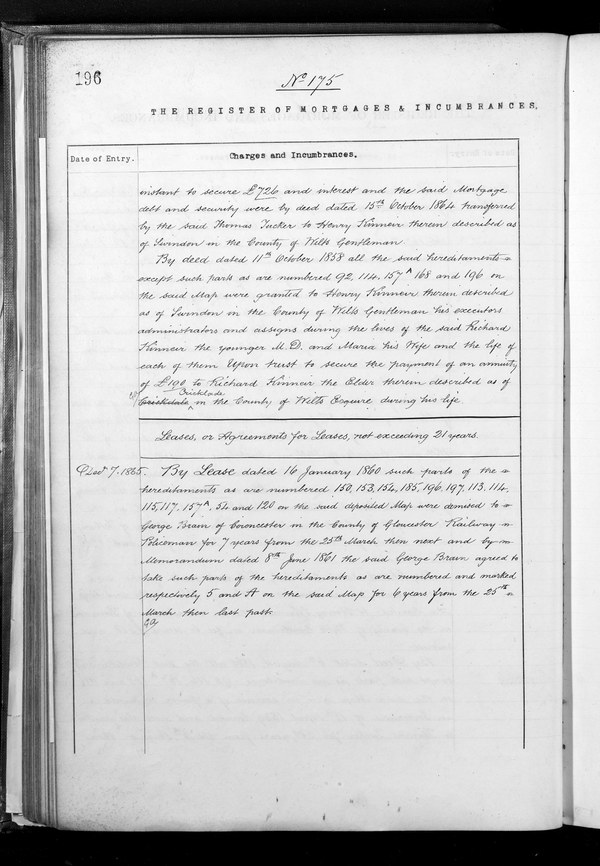 196
No 175
THE REGISTER OF MORTGAGES & INCUMBRANCES,
Date of Entry.
Charges and Incumbrances.
instant to secure £726 and interest and the said Mortgage
debt and security were by deed dated 15th October 1864 transferred
by the said Thomas Tucker to Henry Kinneir therein described as
of Swindon in the County of Wilts Gentleman
By deed dated 11th October 1858 all the said hereditaments
except such parts as are numbered 92, 114, 157A 168 and 196 on
the said Map were granted to Henry Kinneir therein described
as of Swindon in the County of Wilts Gentleman his executors
administrators and assigns during the lives of the said Richard
Kinneir the younger M.D. and Maria his Wife and the life of
each of them Upon trust to secure the payment of an annuity
of £190 to Richard Kinneir the Elder therein described as of
Cricklade
in the County of Wilts Esquire during his life.
Leases, or Agreements for Leases, not exceeding 21 years.
7. 1865.
By Lease dated 16 January 1860 such parts of the
hereditaments as are numbered 150, 153, 154, 185, 196, 197, 113, 114,
115, 117, 157A, 52 and 120 on the said deposited Map were demised to
George Brain of Cirencester in the County of Gloucester Railway
Policeman for 7 years from the 25th March then next and by
Memorandum dated 8th June 1861 the said George Brain agreed to
take such parts of the hereditaments as are numbered and marked
respectively 5 and A on the said Map for 6 years from the 25th
March then last past.